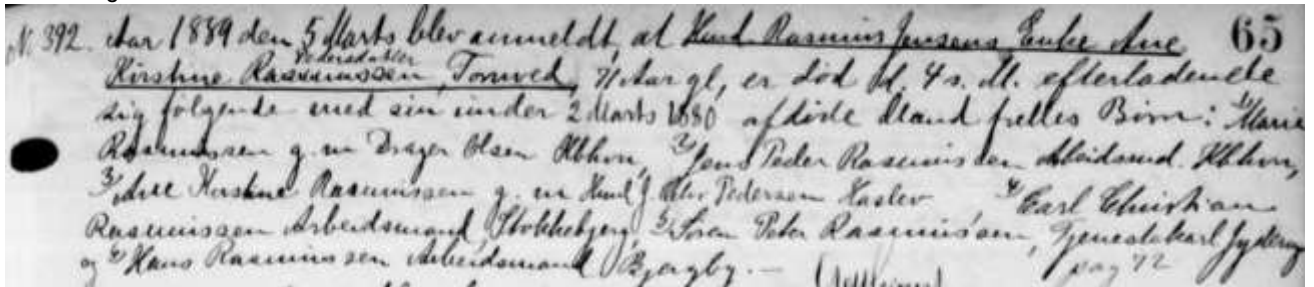 N. 392. Aar 1889 den 5 Marts blev anmeldt, at Huusm. Rasmus Jensens Enke Ane 65
Pedersdatter
Kirstine Rasmussen, Tornved, 71 Aar gl, er død d. 4 s. M. efterladende
sig følgende med sin under 2 Marts 1880 afdøde Mand fælles Børn: 1/ Marie
Rasmussen g. m Olsen Kbhvn, 2/ Jens Peder Rasmussen Arbeidsmd. Kbhvn,
3/ Ane Kirstine Rasmussen g. m Pedersen Haslev 4/ Carl Christian
Rasmussen Arbeidsmand, Stokkebjerg, 5/ Søren Peter Rasmussen, Tjenestekarl Jyderup
og 6/ Hans Rasmussen Arbeidsmand Bjergby. — pag 72